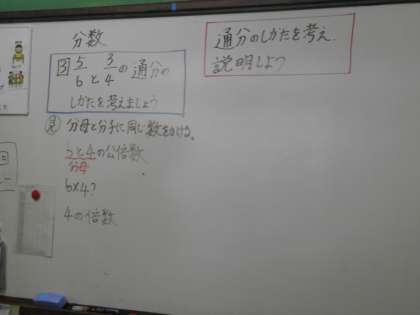 分数
③ 5/6と3/4の通分の
しかたを考えましょう
通分のしかたを考え、
説明しよう
見 分母と分子に同じ数をかける。
6と4の公倍数
分母
6×4?
4の倍数